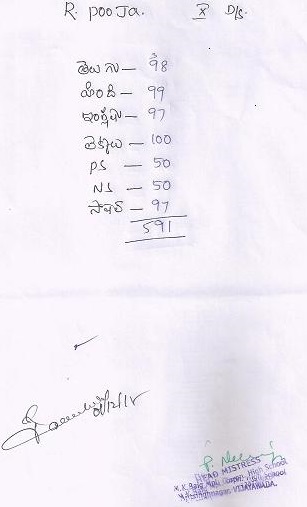 R. POOJA. X D/S.
తెలుగు — 98
హింది — 99
ఇంగ్లీషు — 97
లెక్కలు — 100
PS — 50
NS — 50
సోషల్ — 97
591
HEAD MISTRESS
High School
VIJAYAWADA.